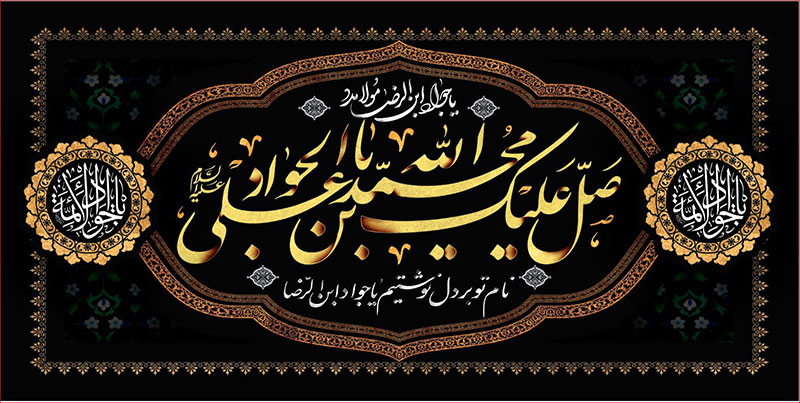 یا جواد ابن الرضا مولا مدد
صَلَّی اللهُ عَلَیْكَ یا مُحَمَّدَ بْنَ عَلِیٍّ الْجَوادِ
علیه السلام
نام تو بر دل نوشتیم یا جواد ابن الرّضا
یا جواد الائمة
یا جواد الائمة